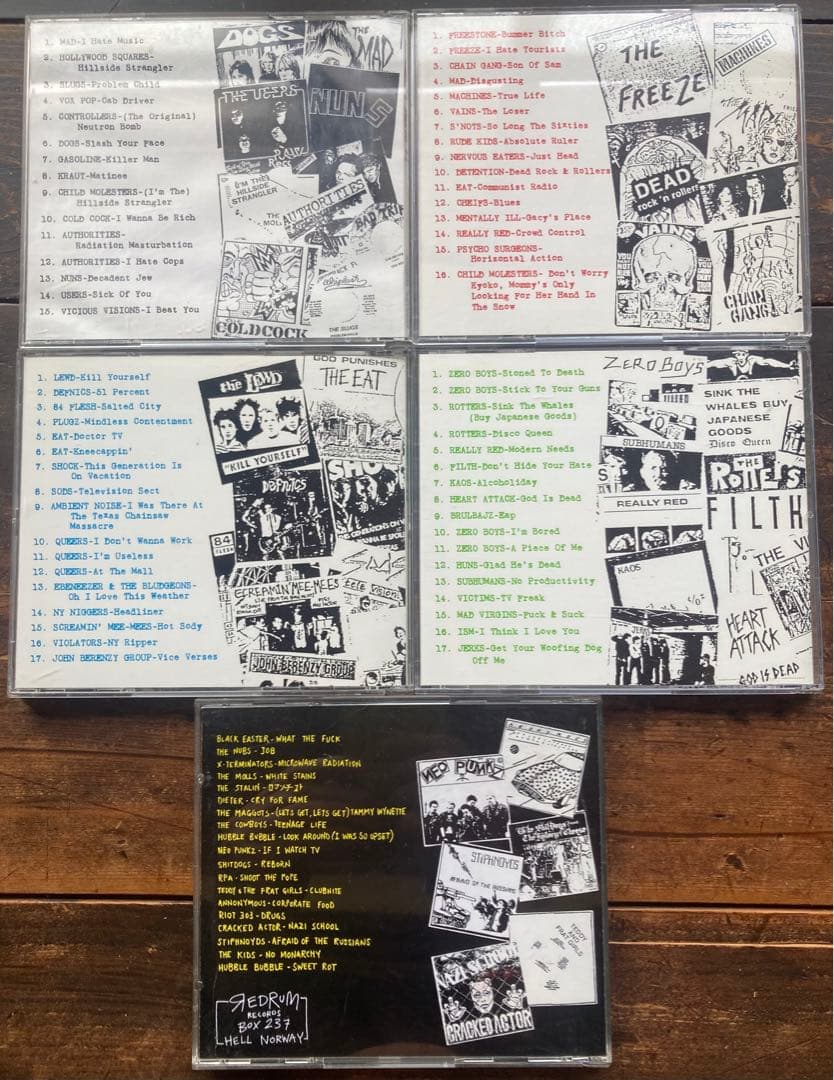 1. MAD-I Hate Music
2. HOLLYWOOD SQUARES-
Hillside Strangler
3. SLUGS-Problem Child
4. VOX POP-Cab Driver
5. CONTROLLERS-(The Original)
Neutron Bomb
6. DOGS-Slash Your Face
7. GASOLINE-Killer Man
8. KRAUT-Matinee
9. CHILD MOLESTERS-(I'm The)
Hillside Strangler
10. COLD COCK-I Wanna Be Rich
11. AUTHORITIES-
Radiation Masturbation
12. AUTHORITIES-I Hate Cops
13. NUNS-Decadent Jew
14. USERS-Sick Of You
15. VICIOUS VISIONS-I Beat You
DOGS
THE MAD
THE USERS
NUNS
I'M THE
HILLSIDE
STRANGLER
AUTHORITIES
COLDCOCK
THE SLUGS
1. FREESTONE-Bummer Bitch
2. FREEZE-I Hate Tourists
3. CHAIN GANG-Son Of Sam
4. MAD-Disgusting
5. MACHINES-True Life
6. VAINS-The Loser
7. S'NOTS-So Long The Sixties
8. RUDE KIDS-Absolute Ruler
9. NERVOUS EATERS-Just Head
10. DETENTION-Dead Rock & Rollers
11. EAT-Communist Radio
12. CHEIFS-Blues
13. MENTALLY ILL-Gacy's Place
14. REALLY RED-Crowd Control
15. PSYCHO SURGEONS-
Horizontal Action
16. CHILD MOLESTERS- Don't Worry
Kyoko, Mommy's Only
Looking For Her Hand In
The Snow
THE
FREEZE
MACHINES
DEAD
rock 'n rollers
VAINS
CHAIN
GANG
1. LEWD-Kill Yourself
2. DEFNICS-51 Percent
3. 84 FLESH-Salted City
4. PLUGZ-Mindless Contentment
5. EAT-Doctor TV
6. EAT-Kneecappin'
7. SHOCK-This Generation Is
On Vacation
8. SODS-Television Sect
9. AMBIENT NOISE-I Was There At
The Texas Chainsaw
Massacre
10. QUEERS-I Don't Wanna Work
11. QUEERS-I'm Useless
12. QUEERS-At The Mall
13. EBENEEZER & THE BLUDGEONS-
Oh I Love This Weather
14. NY NIGGERS-Headliner
15. SCREAMIN' MEE-MEES-Hot Sody
16. VIOLATORS-NY Ripper
17. JOHN BERENZY GROUP-Vice Verses
the LEWD
"KILL YOURSELF"
GOD PUNISHES
THE EAT
DEFNICS
84
FLESH
SCREAMIN' MEE-MEES
JOHN BERENZY GROUP
1. ZERO BOYS-Stoned To Death
2. ZERO BOYS-Stick To Your Guns
3. ROTTERS-Sink The Whales
(Buy Japanese Goods)
4. ROTTERS-Disco Queen
5. REALLY RED-Modern Needs
6. FILTH-Don't Hide Your Hate
7. KAOS-Alcoholiday
8. HEART ATTACK-God Is Dead
9. BRULBAJZ-Eap
10. ZERO BOYS-I'm Bored
11. ZERO BOYS-A Piece Of Me
12. HUNS-Glad He's Dead
13. SUBHUMANS-No Productivity
14. VICTIMS-TV Freak
15. MAD VIRGINS-Fuck & Suck
16. ISM-I Think I Love You
17. JERKS-Get Your Woofing Dog
Off Me
ZERO BOYS
SINK THE
WHALES BUY
JAPANESE
GOODS
Disco Queen
SUBHUMANS
THE
ROTTERS
REALLY RED
FILTH
KAOS
JERKS
HEART
ATTACK
GOD IS DEAD
BLACK EASTER - WHAT THE FUCK
THE NUBS - JOB
X-TERMINATORS - MICROWAVE RADIATION
THE MOLLS - WHITE STAINS
THE STALIN - ロマンチスト
DIETER - CRY FOR FAME
THE MAGGOTS - (LETS GET, LETS GET) TAMMY WYNETTE
THE COWBOYS - TEENAGE LIFE
HUBBLE BUBBLE - LOOK AROUND (I WAS SO UPSET)
NEO PUNKZ - IF I WATCH TV
SHITDOGS - REBORN
RPA - SHOOT THE POPE
TEDDY & THE FRAT GIRLS - CLUBNITE
ANNONYMOUS - CORPORATE FOOD
RIOT 303 - DRUGS
CRACKED ACTOR - NAZI SCHOOL
STIPHNOYDS - AFRAID OF THE RUSSIANS
THE KIDS - NO MONARCHY
HUBBLE BUBBLE - SWEET ROT
REDRUM
RECORDS
BOX 237
HELL NORWAY
NEO PUNKZ
STIPHNOYDS
AFRAID OF THE RUSSIANS
TEDDY
AND
FRAT GIRLS
NAZI SCHOOL
CRACKED ACTOR